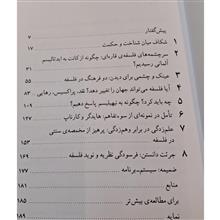 پیش‌گفتار ۷
۱ شکاف میان شناخت و حکمت ۱۷
۲ سرچشمه‌های فلسفه‌ی قاره‌ای: چگونه از کانت به ایدئالیسم
آلمانی رسیدیم؟ ۳۱
۳ عینک و چشمی برای دیدن: دو فرهنگ در فلسفه ۵۵
۴ آیا فلسفه می‌تواند جهان را تغییر دهد؟ نقد، پراکسیس، رهایی ۸۳
۵ چه باید کرد؟ چگونه به نیهیلیسم پاسخ دهیم؟ ۱۰۷
۶ تأمل در نمونه‌ای از سوءتفاهم: هایدگر و کارناپ ۱۲۷
۷ علم‌زدگی در برابر وهم‌زدگی: پرهیز از مخمصه‌ی سنتی
در فلسفه ۱۵۳
۸ جرئت دانستن: فرسودگی نظریه و نوید فلسفه ۱۶۹
ضمیمه: سیستم-برنامه ۱۷۷
منابع ۱۸۱
برای مطالعه‌ی بیش‌تر ۱۸۵
نمایه